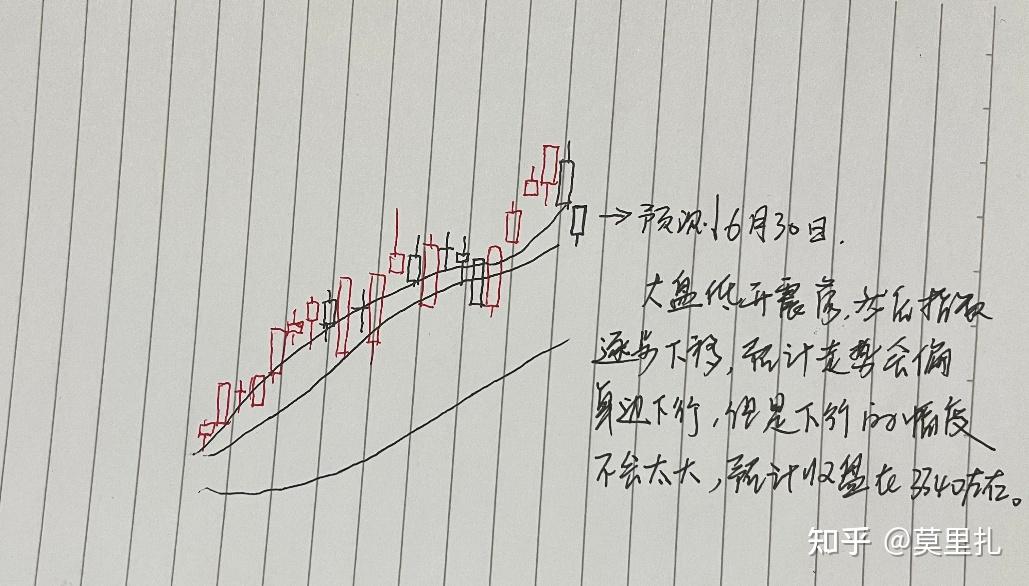 →预测6月30日.
大盘低开震荡,尔后指数
逐步下移,预计走势会偏
单边下行,但是下行的幅度
不会太大,预计收盘在3340左右。
知乎 @莫里扎